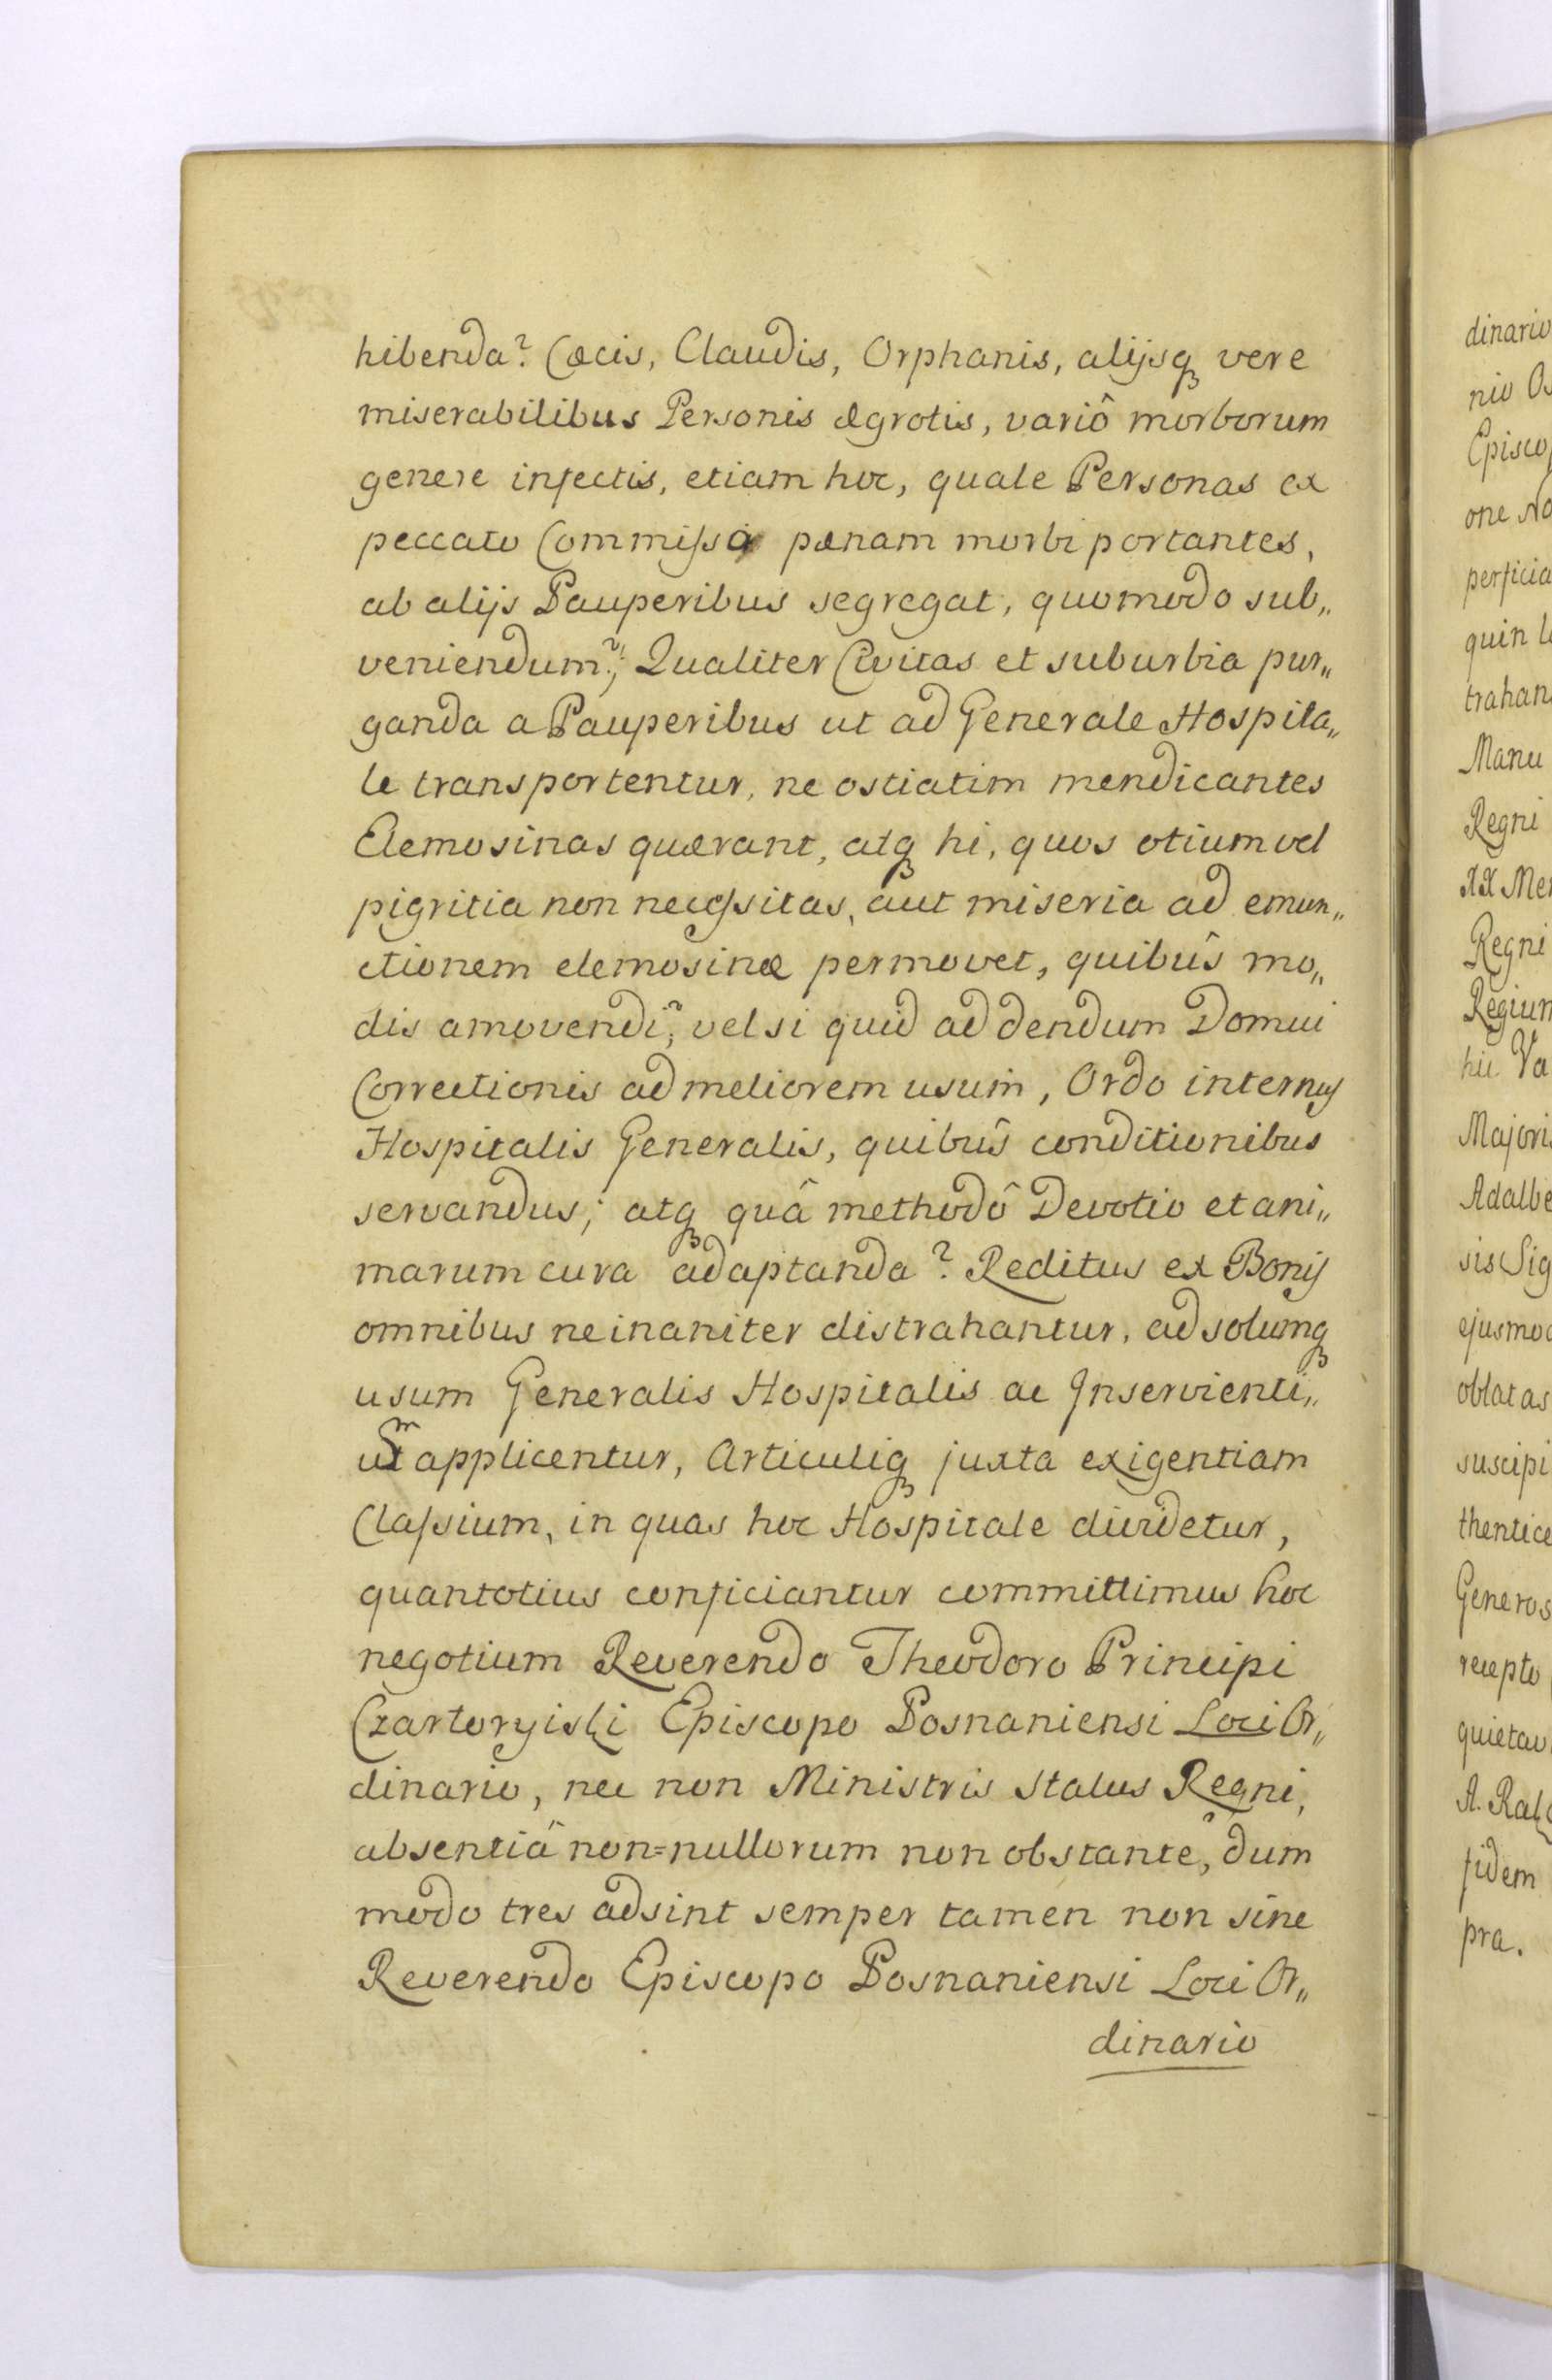 hibenda? Cæcis, Claudis, Orphanis, alijsq vere
miserabilibus Personis ægrotis, variô morborum
genere infectis, etiam hoc, quale Personas ex
peccato Commisso pænam morbi portantes,
ab alijs Pauperibus segregat, quomodo sub„
veniendum?; Qualiter Civitas et suburbia pur„
ganda a Pauperibus ut ad Generale Hospita„
le transportentur, ne ostiatim mendicantes
Elemosinas quærant, atq hi, quos otium vel
pigritia non necessitas, aut miseria ad emun„
ctionem elemosinæ permovet, quibûs mo„
dis amovendi?; vel si quid addendum Domui
Correctionis ad meliorem usum, Ordo internus
Hospitalis Generalis, quibûs conditionibus
servandus; atq quâ methodô Devotio et ani„
marum cura adaptanda? Reditus ex Bonis
omnibus ne inaniter distrahantur, ad solumq
usum Generalis Hospitalis ac Inservienti„
um applicentur, Articuliq juxta exigentiam
Classium, in quas hoc Hospitale dividetur,
quantotius conficiantur committimus hoc
negotium Reverendo Theodoro Principi
Czartoryiski Episcopo Posnaniensi Loci Or„
dinario, nec non Ministris Status Regni,
absentiâ non=nullorum non obstante, dum
modo tres adsint semper tamen non sine
Reverendo Episcopo Posnaniensi Loci Or„
dinario
dinario
nio Os
Episco
one No
perficia
quin l
trahan
Manu
Regni
XX Me
Regni
Regium
hic. Va
Majori
Adalbe
sis Sig
ejusmo
oblatas
suscipi
thentice
Generos
recepto
quietav
A. Ral
fidem
pra.